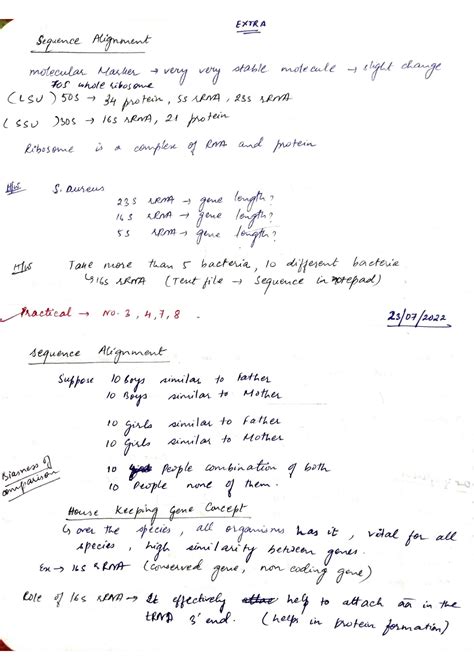 EXTRA
Sequence Alignment
molecular Marker → very very stable molecule → slight change
70S whole ribosome
(LSU) 50S → 34 protein, 5S rRNA, 23S rRNA
(SSU) 30S → 16S rRNA, 21 protein
Ribosome is a complex of RNA and protein
H/W S. aureus
23S rRNA → gene length?
16S rRNA → gene length?
5S rRNA → gene length?
H/W Take more than 5 bacteria, 10 different bacteria
↳ 16S rRNA (Text file → Sequence in notepad)
Practical → No. 3, 4, 7, 8.
23/07/2022
Sequence Alignment
Suppose 10 Boys similar to Father
10 Boys similar to Mother
10 Girls similar to Father
10 Girls similar to Mother
Biasness of comparison
10 People combination of both
10 People none of them.
House Keeping Gene Concept
↳ over the species, all organisms has it, vital for all
species, high similarity between genes.
Ex → 16S rRNA (conserved gene, non coding gene)
Role of 16S rRNA → It effectively help to attach aa in the
tRNA 3' end. (helps in protein formation)